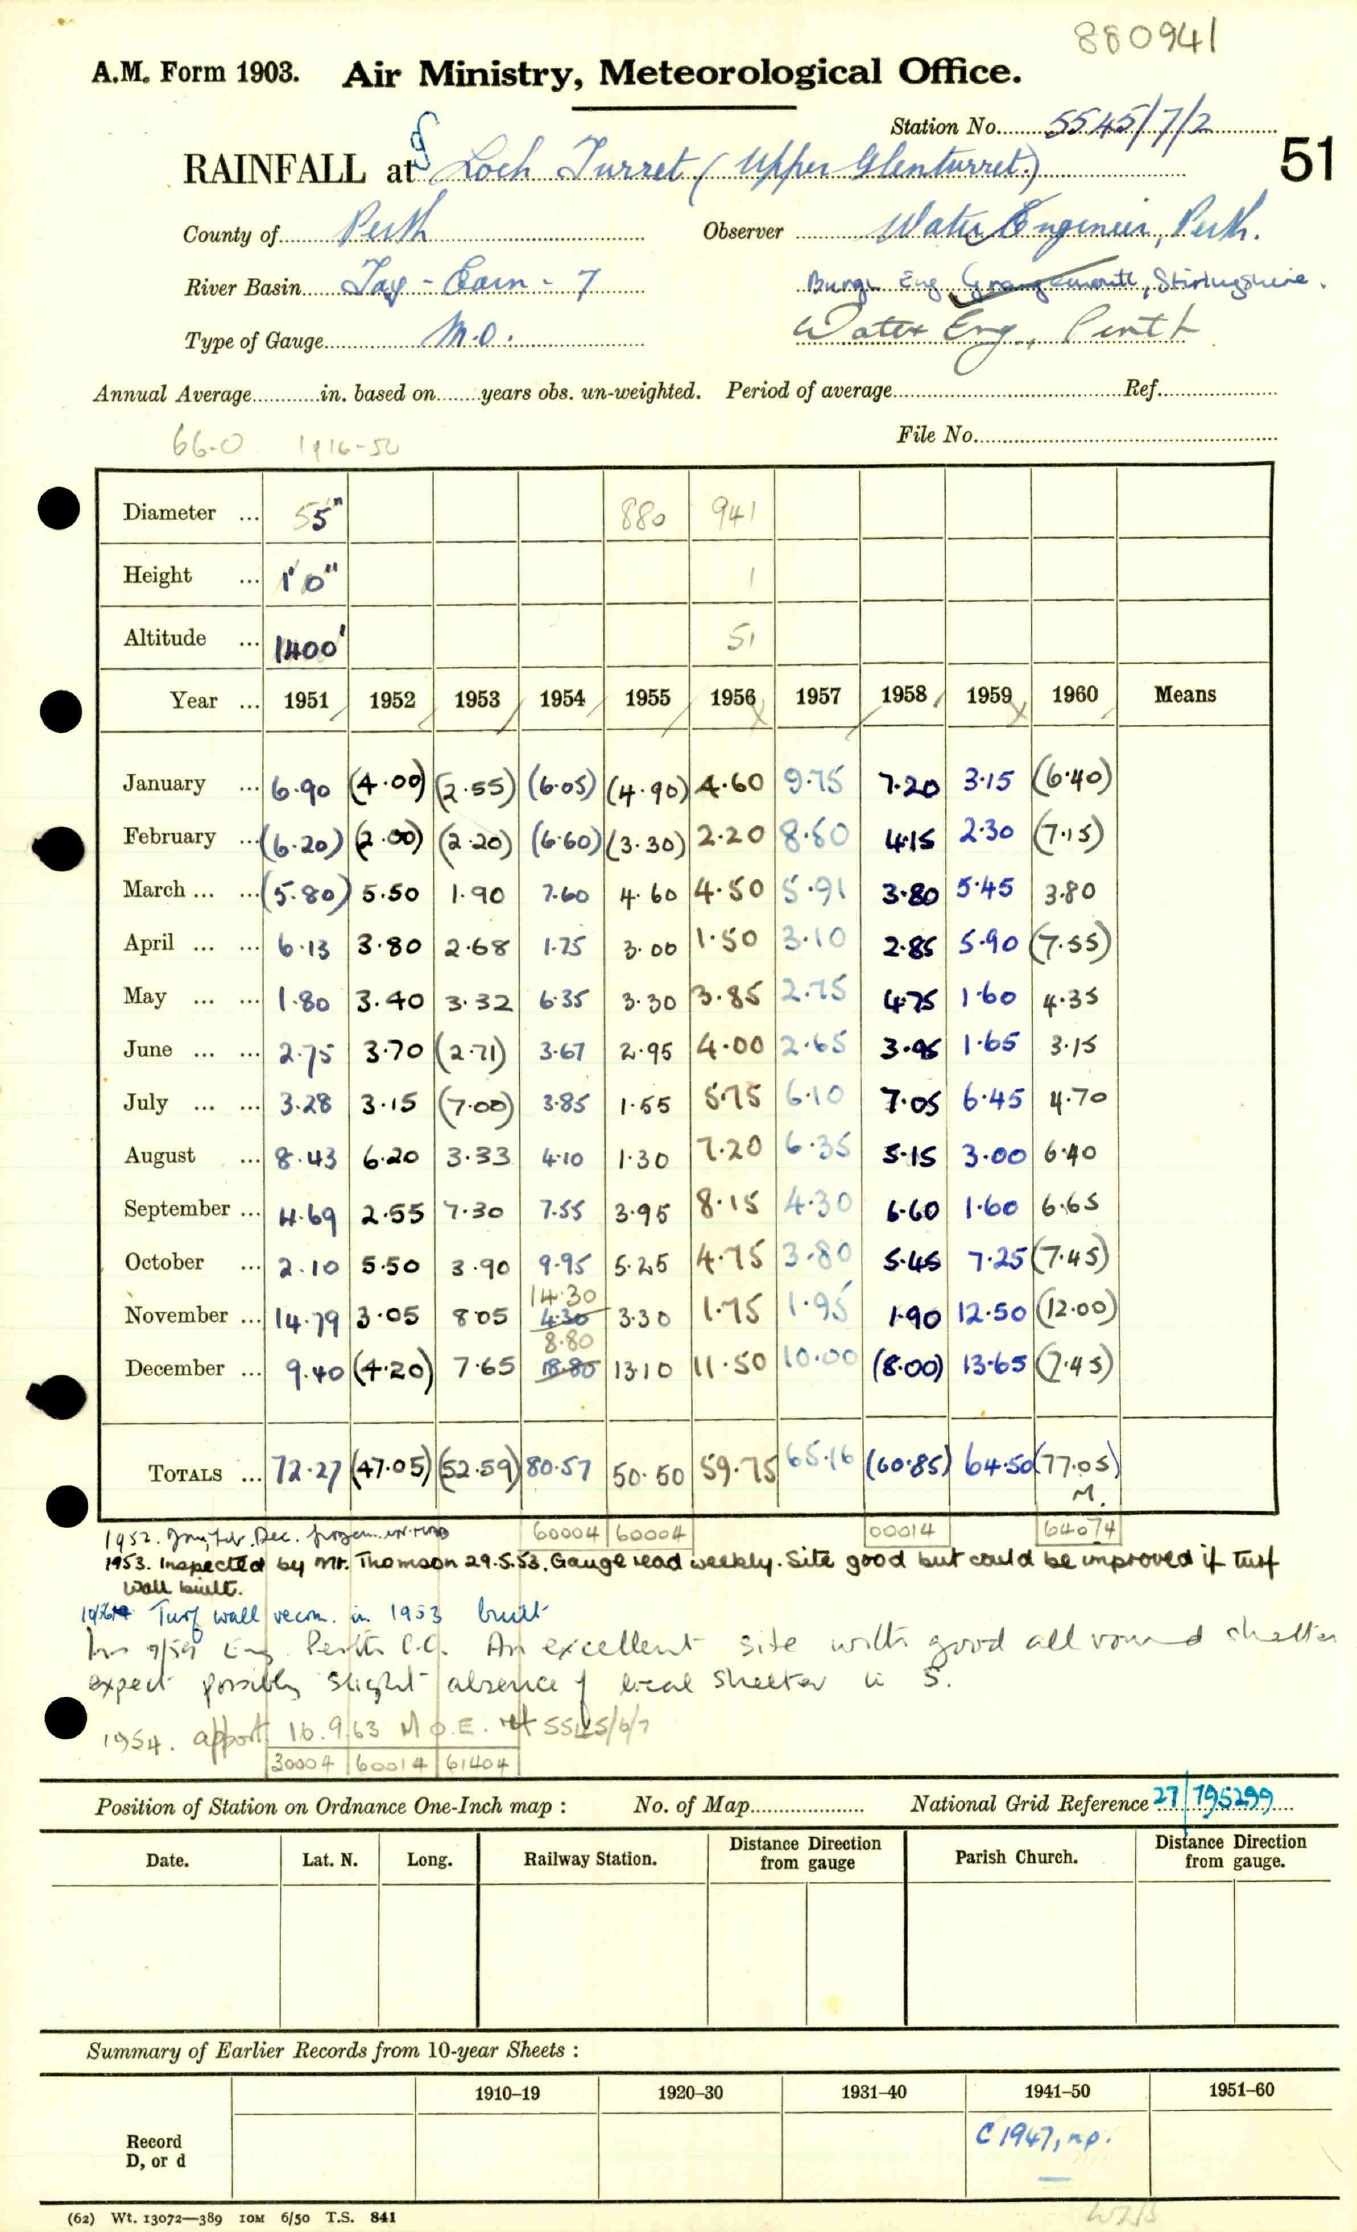 880941
A.M. Form 1903. Air Ministry, Meteorological Office.
Station No. 5545/7/2
RAINFALL at Loch Turret (Upper Glenturret.) 51
County of Perth Observer Water Engineer, Perth.
River Basin Tay - Earn - 7 Burgh Eng Grangemouth, Stirlingshire.
Type of Gauge M.O. Water Eng., Perth
Annual Average in. based on years obs. un-weighted. Period of average Ref.
66.0 1916-50 File No.
Diameter ... 5" 880 941
Height ... 1'0" 1
Altitude ... 1400' 51
Year ... 1951 1952 1953 1954 1955 1956 1957 1958 1959 1960 Means
January ... 6.90 (4.00) (2.55) (6.05) (4.90) 4.60 9.75 7.20 3.15 (6.40)
February ... (6.20) (2.00) (2.20) (6.60) (3.30) 2.20 8.50 4.15 2.30 (7.15)
March ... ... (5.80) 5.50 1.90 7.60 4.60 4.50 5.91 3.80 5.45 3.80
April ... ... 6.13 3.80 2.68 1.75 3.00 1.50 3.10 2.85 5.90 (7.55)
May ... ... 1.80 3.40 3.32 6.35 3.30 3.85 2.75 4.75 1.60 4.35
June ... ... 2.75 3.70 (2.71) 3.67 2.95 4.00 2.65 3.95 1.65 3.15
July ... ... 3.28 3.15 (7.00) 3.85 1.55 5.75 6.10 7.05 6.45 4.70
August ... 8.43 6.20 3.33 4.10 1.30 7.20 6.35 5.15 3.00 6.40
September ... 4.69 2.55 7.30 7.55 3.95 8.15 4.30 6.60 1.60 6.65
October ... 2.10 5.50 3.90 9.95 5.25 4.75 3.80 5.45 7.25 (7.45)
14.30
November ... 14.79 3.05 8.05 4.30 3.30 1.75 1.95 1.90 12.50 (12.00)
8.80
December ... 9.40 (4.20) 7.65 18.80 13.10 11.50 10.00 (8.00) 13.65 (7.45)
TOTALS ... 72.27 (47.05) (52.59) 80.57 50.50 59.75 65.16 (60.85) 64.50 (77.05)
M.
60004 60004 00014 64074
1952. Jan, Feb, Dec. frozen
1953. Inspected by Mr. Thomson 29.5.53. Gauge read weekly. Site good but could be improved if turf
wall built.
Turf wall recom. in 1953 built
Ins 9/59 Eng Perth C.C. An excellent site with good all round shelter
expect possibly slight absence of local shelter in S.
1954. apport 16.9.63 M.O.E. ref 5545/6/7
30004 60014 61404
Position of Station on Ordnance One-Inch map : No. of Map National Grid Reference 27/795299
Date. Lat. N. Long. Railway Station. Distance from gauge Direction Parish Church. Distance from gauge. Direction
Summary of Earlier Records from 10-year Sheets :
1910–19 1920–30 1931–40 1941–50 1951–60
Record
D, or d
C 1947, n.p.
(62) Wt. 13072—389 10M 6/50 T.S. 841